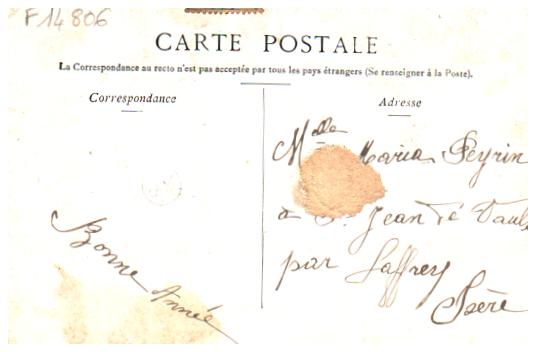 F14806
CARTE POSTALE
La Correspondance au recto n'est pas acceptée par tous les pays étrangers (Se renseigner à la Poste).
Correspondance
Adresse
Mlle Maria Peyrin
à S. Jean de Vaulx
par Laffrey
Isère
Bonne Année